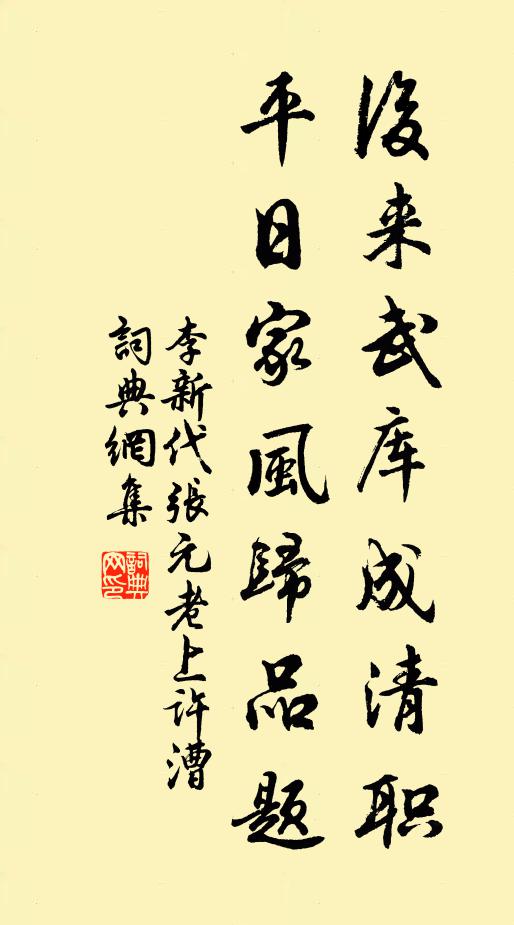 後来武库成清职
平日家風歸品题
李新代張元老上许漕
詞典網集
詞典网印